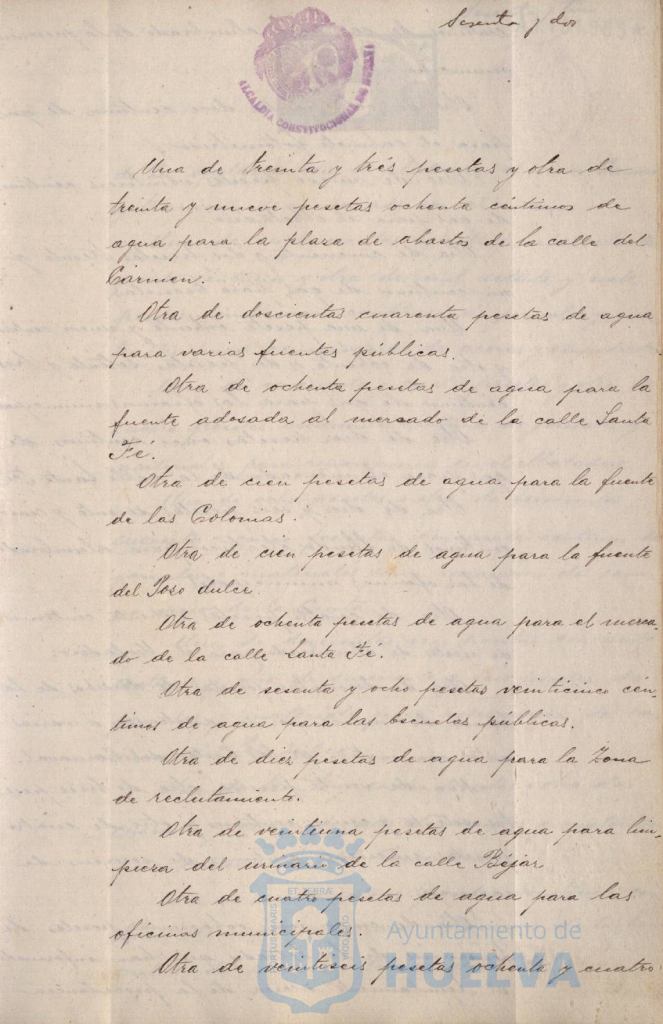 Sesenta y dos
ALCALDIA CONSTITUCIONAL DE HUELVA
Una de treinta y trés pesetas y otra de
treinta y nueve pesetas ochenta céntimos de
agua para la plaza de abastos de la calle del
Cármen.
Otra de doscientas cuarenta pesetas de agua
para varias fuentes públicas.
Otra de ochenta pesetas de agua para la
fuente adosada al mercado de la calle Santa
Fé.
Otra de cien pesetas de agua para la fuente
de las Colonias.
Otra de cien pesetas de agua para la fuente
del Poso dulce.
Otra de ochenta pesetas de agua para el merca-
do de la calle Santa Fé.
Otra de sesenta y ocho pesetas veinticinco cén-
timos de agua para las Escuelas públicas.
Otra de diez pesetas de agua para la Zona
de reclutamiento.
Otra de veintiuna pesetas de agua para lim-
pieza del urinario de la calle Béjar
Otra de cuatro pesetas de agua para las
oficinas municipales.
Otra de veintiseis pesetas ochenta y cuatro
Ayuntamiento de
HUELVA